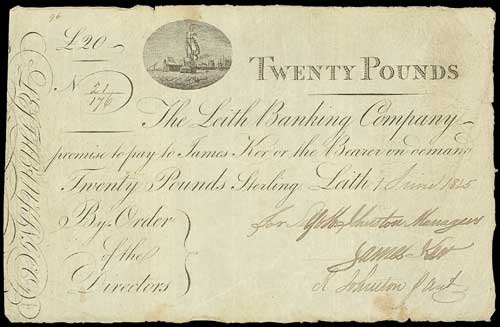 96
£20
TWENTY POUNDS
N 21/176
The Leith Banking Company
promise to pay to James Ker or the Bearer on demand
Twenty Pounds Sterling. Leith 1 June 1825
By Order
of the
Directors
for Johnston Managers
James Ker
Johnston